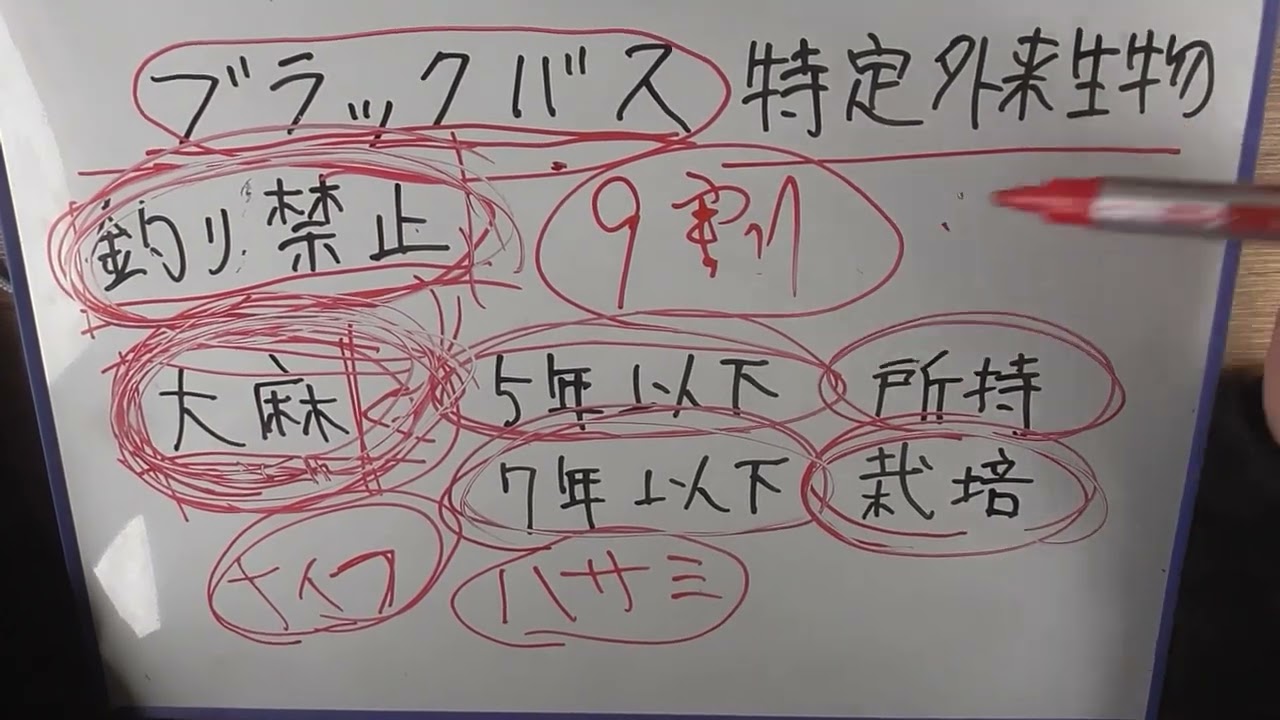 ブラックバス 特定外来生物
釣り禁止 9割
大麻 5年以下 所持
7年以下 栽培
ナイフ ハサミ